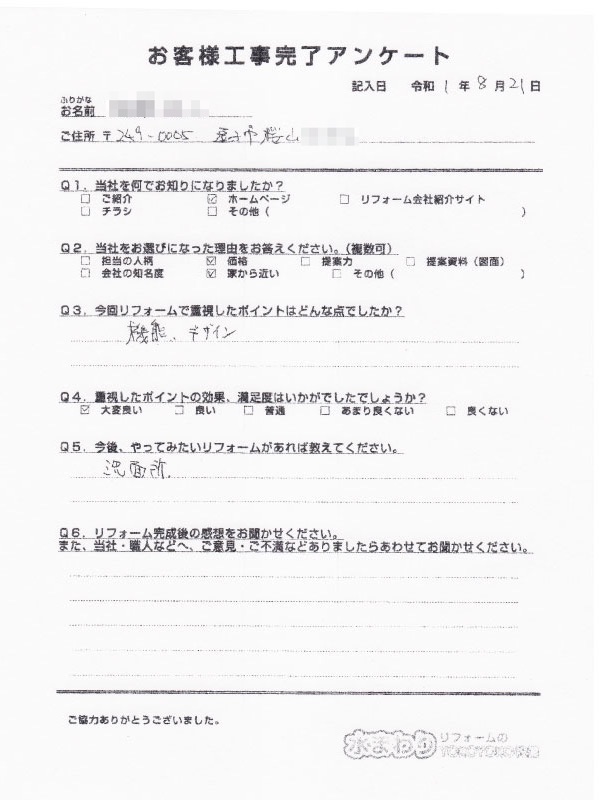 お客様工事完了アンケート
記入日 令和 1 年 8 月 21 日
ふりがな
お名前
ご住所 〒249-0005 逗子市桜山
Q1. 当社を何でお知りになりましたか？
□ ご紹介 ☑ ホームページ □ リフォーム会社紹介サイト
□ チラシ □ その他（ ）
Q2. 当社をお選びになった理由をお答えください。（複数可）
□ 担当の人柄 ☑ 価格 □ 提案力 □ 提案資料（図面）
□ 会社の知名度 ☑ 家から近い □ その他（ ）
Q3. 今回リフォームで重視したポイントはどんな点でしたか？
機能、デザイン
Q4. 重視したポイントの効果、満足度はいかがでしたでしょうか？
☑ 大変良い □ 良い □ 普通 □ あまり良くない □ 良くない
Q5. 今後、やってみたいリフォームがあれば教えてください。
洗面所
Q6. リフォーム完成後の感想をお聞かせください。
また、当社・職人などへ、ご意見・ご不満などありましたらあわせてお聞かせください。
ご協力ありがとうございました。
水まわり リフォームの